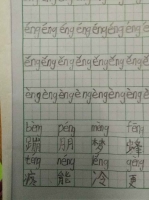 ēng ēng ēng ēng ēng ēng
éng éng éng éng éng éng
ěng ěng ěng ěng ěng ěng
èng èng èng èng èng èng
bèng péng mèng fēng
蹦 朋 梦 蜂
téng néng lěng gèng
疼 能 冷 更